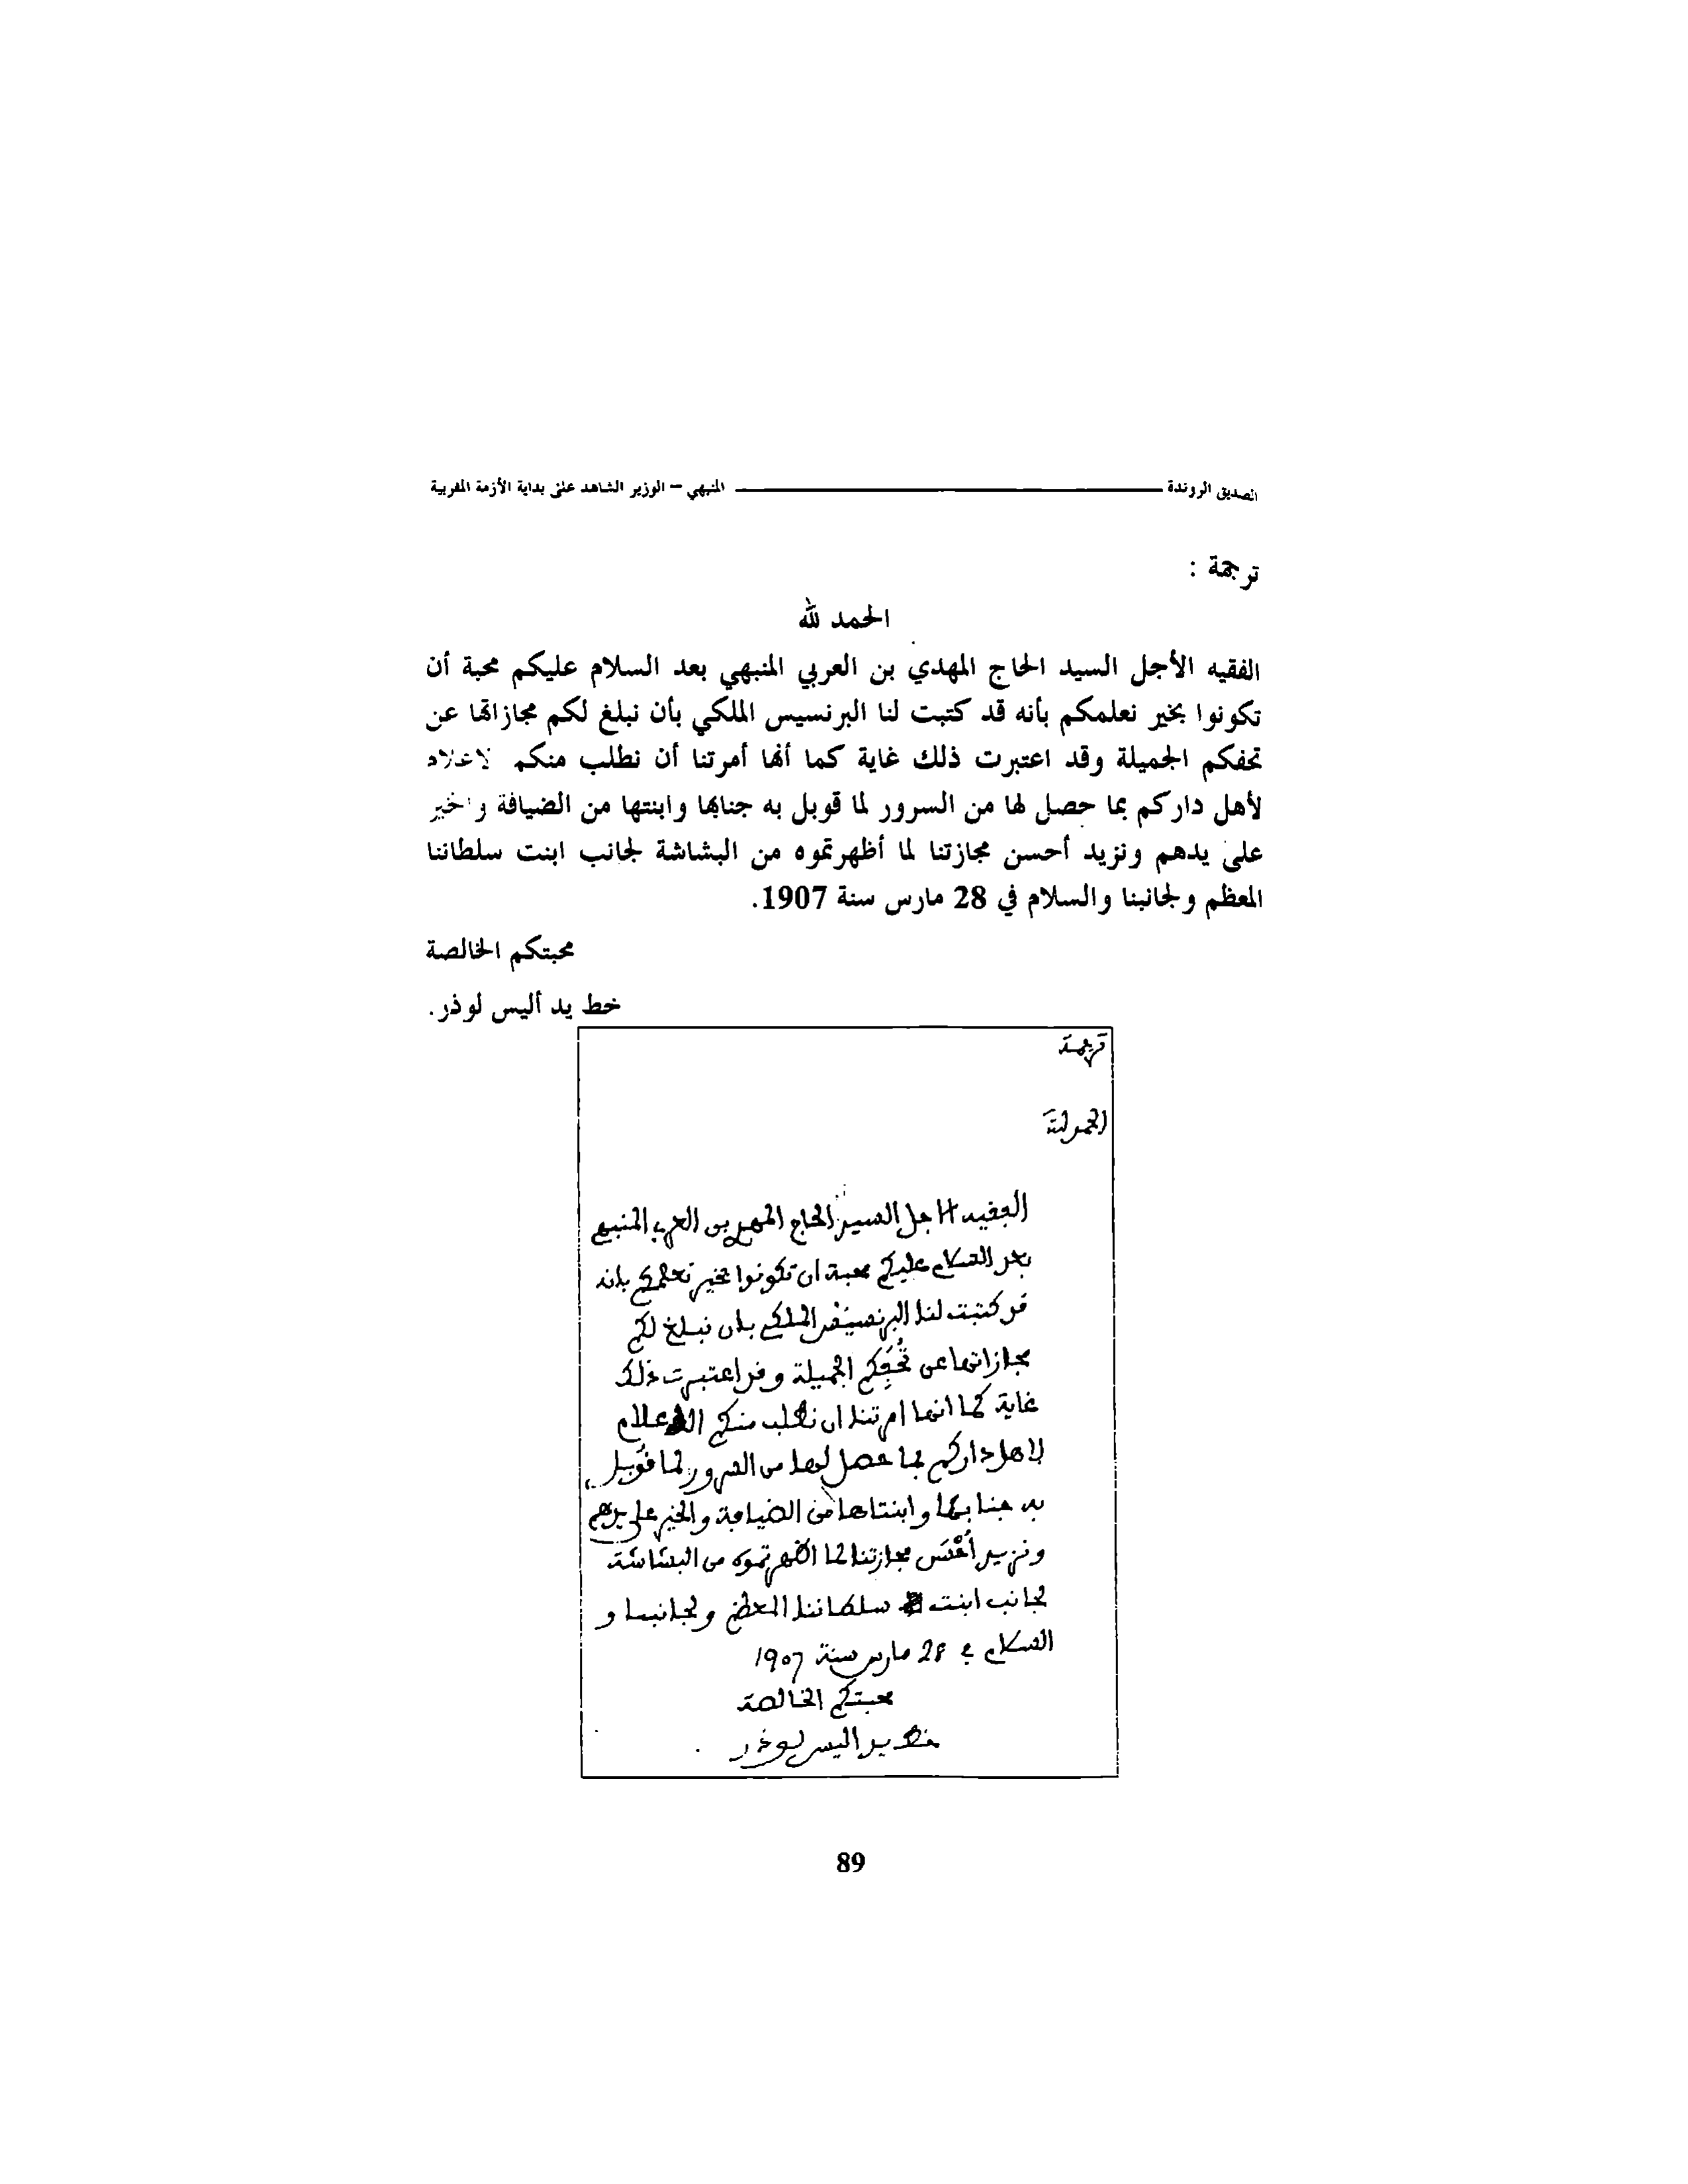 الصديق الروندة — المنبهي – الوزير الشاهد على بداية الأزمة المغربية
ترجمة :
الحمد لله
الفقيه الأجل السيد الحاج المهدي بن العربي المنبهي بعد السلام عليكم محبة أن
تكونوا بخير نعلمكم بأنه قد كتبت لنا البرنسيس الملكي بأن نبلغ لكم مجازاتها عن
تحفكم الجميلة وقد اعتبرت ذلك غاية كما أنها أمرتنا أن نطلب منكم لاعلام
لأهل داركم بما حصل لها من السرور لما قوبل به جنابها وابنتها من الضيافة واخير
على يدهم ونزيد أحسن مجازتنا لما أظهرتموه من البشاشة لجانب ابنت سلطاننا
المعظم ولجانبنا والسلام في 28 مارس سنة 1907.
محبتكم الخالصة
خط يد أليس لوذر.
ترجمة
الحمد لله
الفقيه الاجل السيد الحاج المهدي بن العربي المنبهي
بعد السلام عليكم محبة ان تكونوا بخير نعلمكم بانه
قد كتبت لنا البرنسيس الملكي بان نبلغ لكم
مجازاتها عن تُحَفِكم الجميلة وقد اعتبرت ذلك
غاية كما انها امرتنا ان نطلب منكم الاعلام
لاهل داركم بما حصل لها من السرور لما قوبل
به جنابها وابنتاها من الضيافة والخير على يدهم
ونزيد أحْسَن مجازتنا لما اظهرتموه من البشاشة
لجانب ابنت سلطاننا المعظم ولجانبنا و
السلام في 28 مارس سنة 1907
محبتكم الخالصة
خط يد اليس لوذر
89